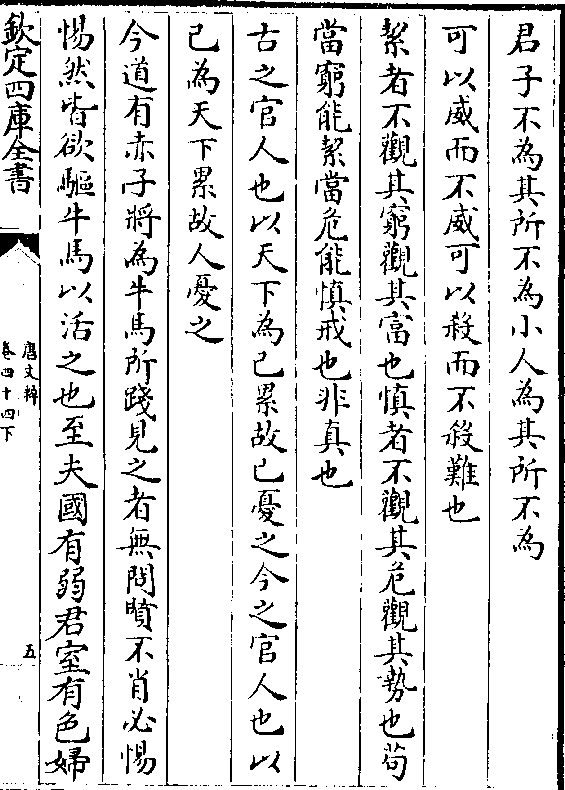 君子不為其所不為小人為其所不為
可以威而不威可以殺而不殺難也
絜者不觀其窮觀其富也慎者不觀其危觀其勢也茍
當窮能絜當危能慎戒也非真也
古之官人也以天下為己累故己憂之今之官人也以
己為天下累故人憂之
今道有赤子將為牛馬所踐見之者無問賢不肖必惕
惕然皆欲驅牛馬以活之也至夫國有弱君室有色婦
欽定四庫全書
唐文粹
卷四十四下
五